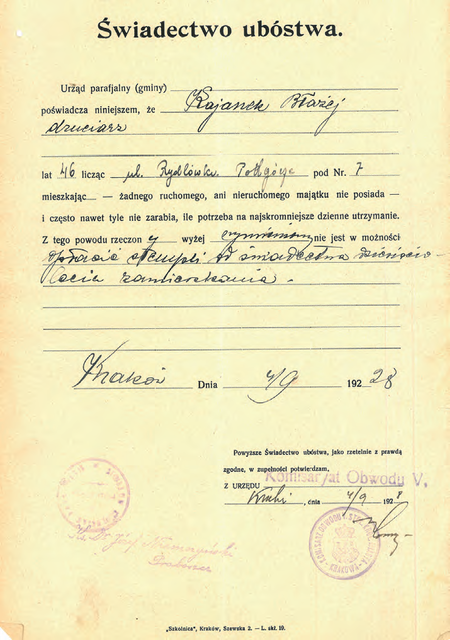 Świadectwo ubóstwa.
Urząd parafjalny (gminy)
poświadcza niniejszem, że Kajanek Błażej
druciarz
lat 46 licząc ul. Rydlówka Podgórze pod Nr. 7
mieszkając — żadnego ruchomego, ani nieruchomego majątku nie posiada —
i często nawet tyle nie zarabia, ile potrzeba na najskromniejsze dzienne utrzymanie.
Z tego powodu rzeczon y wyżej wymieniony nie jest w możności
opłacić stempli od świadectwa
zamieszkania.
Kraków Dnia 4/9 1928
Powyższe Świadectwo ubóstwa, jako rzetelnie z prawdą
zgodne, w zupełności potwierdzam,
Z URZĘDU Komisarjat Obwodu V,
dnia 4/9 1928
Ks. Dr. Józef
„Szkolnica", Kraków, Szewska 2. – L. skł. 19.